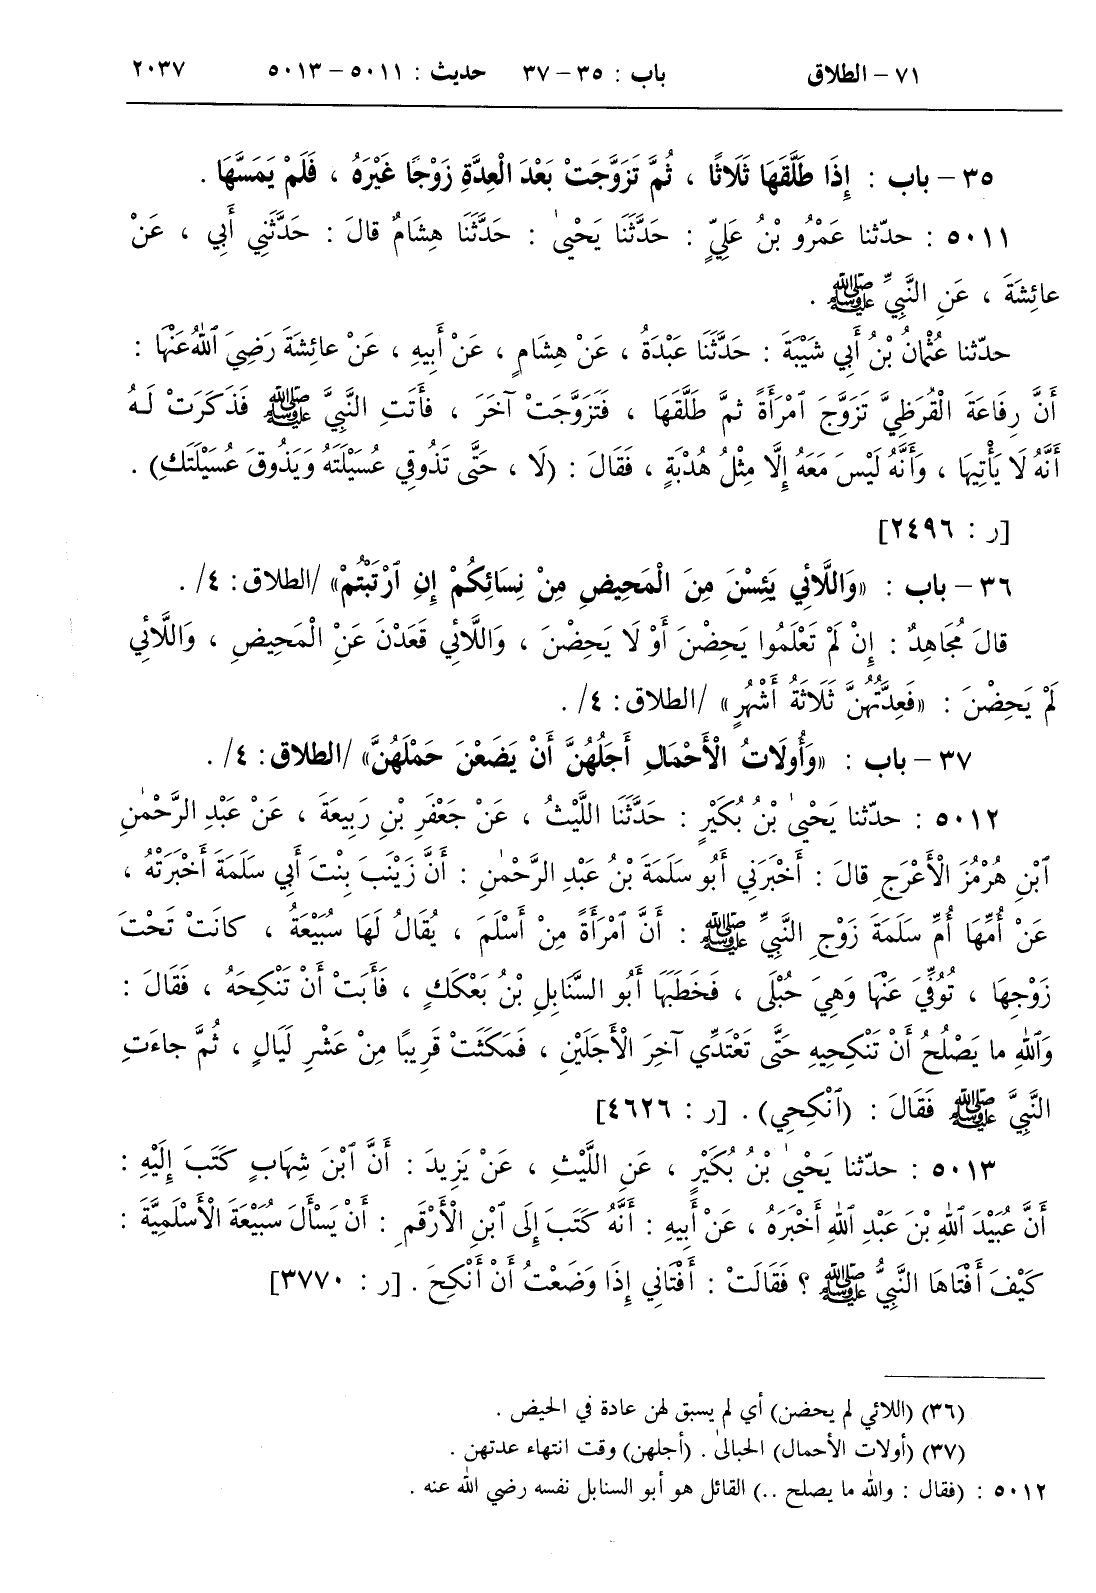 ٧١ - الطلاق باب : ٣٥ - ٣٧ حديث : ٥٠١١ - ٥٠١٣ ٢٠٣٧
٣٥ - باب : إِذَا طَلَّقَهَا ثَلَاثًا ، ثُمَّ تَزَوَّجَتْ بَعْدَ الْعِدَّةِ زَوْجًا غَيْرَهُ ، فَلَمْ يَمَسَّهَا .
٥٠١١ : حدّثنا عَمْرُو بْنُ عَلِيٍّ : حَدَّثَنَا يَحْيَىٰ : حَدَّثَنَا هِشَامٌ قالَ : حَدَّثَنِي أَبِي ، عَنْ
عائِشَةَ ، عَنِ النَّبِيِّ ﷺ .
حدّثنا عُثْمانُ بْنُ أَبِي شَيْبَةَ : حَدَّثَنَا عَبْدَةُ ، عَنْ هِشَامٍ ، عَنْ أَبِيهِ ، عَنْ عائِشَةَ رَضِيَ ٱللهُ عَنْهَا :
أَنَّ رِفَاعَةَ الْقُرَظِيَّ تَزَوَّجَ ٱمْرَأَةً ثمَّ طَلَّقَهَا ، فَتَزَوَّجَتْ آخَرَ ، فَأَتَتِ النَّبِيَّ ﷺ فَذَكَرَتْ لَهُ
أَنَّهُ لَا يَأْتِيهَا ، وَأَنَّهُ لَيْسَ مَعَهُ إِلَّا مِثْلُ هُدْبَةٍ ، فَقَالَ : (لَا ، حَتَّى تَذُوقِي عُسَيْلَتَهُ وَيَذُوقَ عُسَيْلَتَكِ) .
[ر : ٢٤٩٦]
٣٦ - باب : «وَاللَّائِي يَئِسْنَ مِنَ الْمَحِيضِ مِنْ نِسَائِكُمْ إِنِ ٱرْتَبْتُمْ» /الطلاق : ٤/ .
قالَ مُجَاهِدٌ : إِنْ لَمْ تَعْلَمُوا يَحِضْنَ أَوْ لَا يَحِضْنَ ، وَاللَّائِي قَعَدْنَ عَنْ الْمَحِيضِ ، وَاللَّائِي
لَمْ يَحِضْنَ : «فَعِدَّتُهُنَّ ثَلَاثَةُ أَشْهُرٍ» /الطلاق : ٤/ .
٣٧ - باب : «وَأُولَاتُ الْأَحْمَالِ أَجَلُهُنَّ أَنْ يَضَعْنَ حَمْلَهُنَّ» /الطلاق : ٤/ .
٥٠١٢ : حدّثنا يَحْيَىٰ بْنُ بُكَيْرٍ : حَدَّثَنَا اللَّيْثُ ، عَنْ جَعْفَرِ بْنِ رَبِيعَةَ ، عَنْ عَبْدِ الرَّحْمٰنِ
ٱبْنِ هُرْمُزَ الْأَعْرَجِ قالَ : أَخْبَرَنِي أَبُو سَلَمَةَ بْنُ عَبْدِ الرَّحْمٰنِ : أَنَّ زَيْنَبَ بِنْتَ أَبِي سَلَمَةَ أَخْبَرَتْهُ ،
عَنْ أُمِّهَا أُمِّ سَلَمَةَ زَوْجِ النَّبِيِّ ﷺ : أَنَّ ٱمْرَأَةً مِنْ أَسْلَمَ ، يُقَالُ لَهَا سُبَيْعَةُ ، كانَتْ تَحْتَ
زَوْجِهَا ، تُوُفِّيَ عَنْهَا وَهِيَ حُبْلَى ، فَخَطَبَهَا أَبُو السَّنَابِلِ بْنُ بَعْكَكٍ ، فَأَبَتْ أَنْ تَنْكِحَهُ ، فَقَالَ :
وَٱللهِ ما يَصْلُحُ أَنْ تَنْكِحِيهِ حَتَّى تَعْتَدِّي آخِرَ الْأَجَلَيْنِ ، فَمَكَثَتْ قَرِيبًا مِنْ عَشْرِ لَيَالٍ ، ثُمَّ جاءَتِ
النَّبِيَّ ﷺ فَقَالَ : (ٱنْكِحِي) . [ر : ٤٦٢٦]
٥٠١٣ : حدّثنا يَحْيَىٰ بْنُ بُكَيْرٍ ، عَنِ اللَّيْثِ ، عَنْ يَزِيدَ : أَنَّ ٱبْنَ شِهَابٍ كَتَبَ إِلَيْهِ :
أَنَّ عُبَيْدَ ٱللهِ بْنَ عَبْدِ ٱللهِ أَخْبَرَهُ ، عَنْ أَبِيهِ : أَنَّهُ كَتَبَ إِلَى ٱبْنِ الْأَرْقَمِ : أَنْ يَسْأَلَ سُبَيْعَةَ الْأَسْلَمِيَّةَ :
كَيْفَ أَفْتَاهَا النَّبِيُّ ﷺ ؟ فَقَالَتْ : أَفْتَانِي إِذَا وَضَعْتُ أَنْ أَنْكِحَ . [ر : ٣٧٧٠]
(٣٦) (اللائي لم يحضن) أي لم يسبق لهن عادة في الحيض .
(٣٧) (أولات الأحمال) الحبالىٰ . (أجلهن) وقت انتهاء عدتهن .
٥٠١٢ : (فقال : والله ما يصلح ..) القائل هو أبو السنابل نفسه رضي الله عنه .